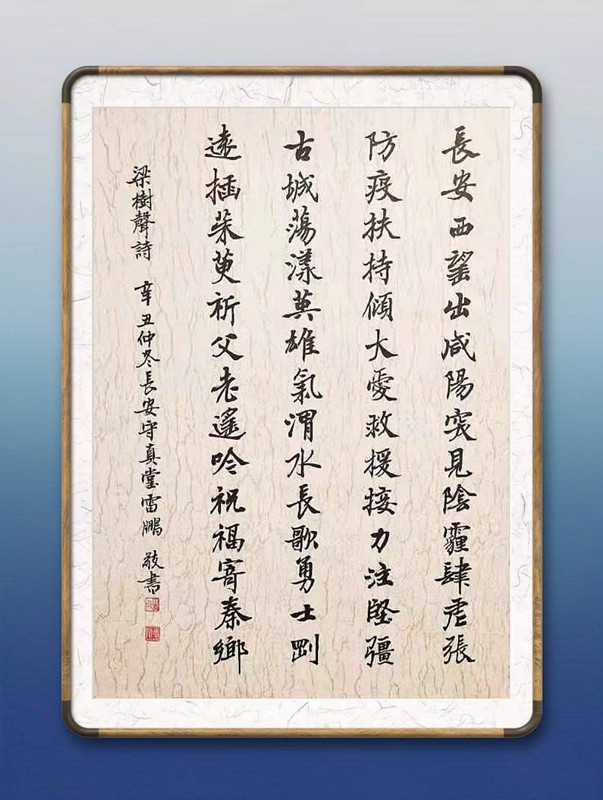 長安西望出咸陽突見陰霾肆虐張
防疫扶持傾大愛救援接力注堅彊
古城蕩漾英雄氣渭水長歌勇士剛
遠插茱萸祈父老遙吟祝福寄秦鄉
梁樹聲詩 辛丑仲冬長安守真堂雷鵬 敬書